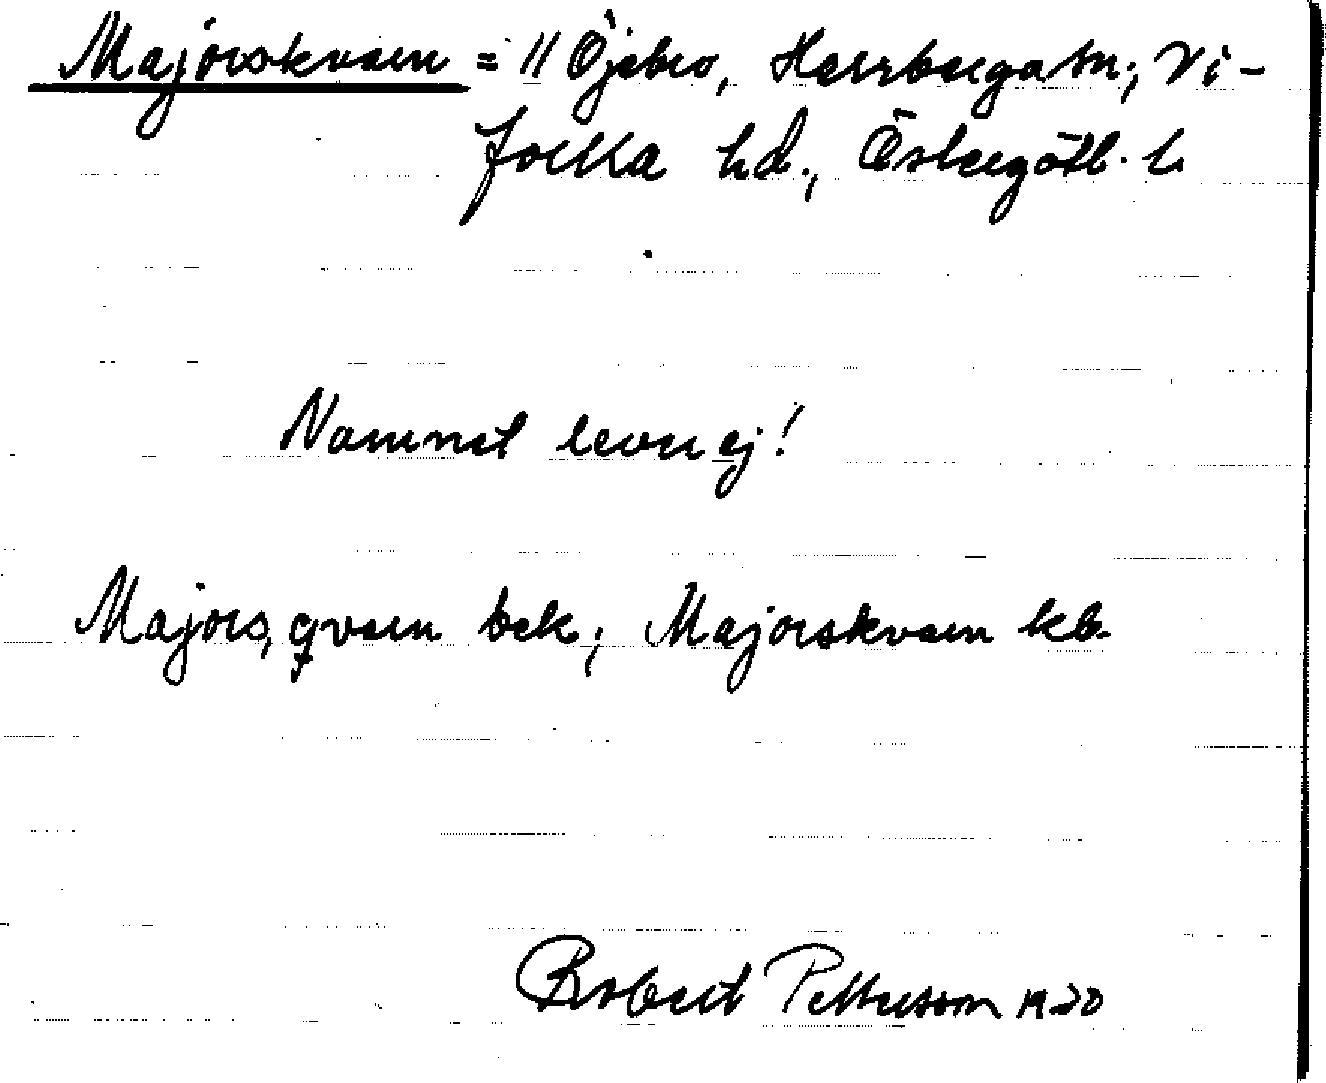 Majorskvarn = // Öjebro, Herrberga sn; Vi-
folka hd., Östergötl. l.
Namnet lever ej!
Majors, qvarn bek; Majorskvarn kb.
Robert Pettersson 1930